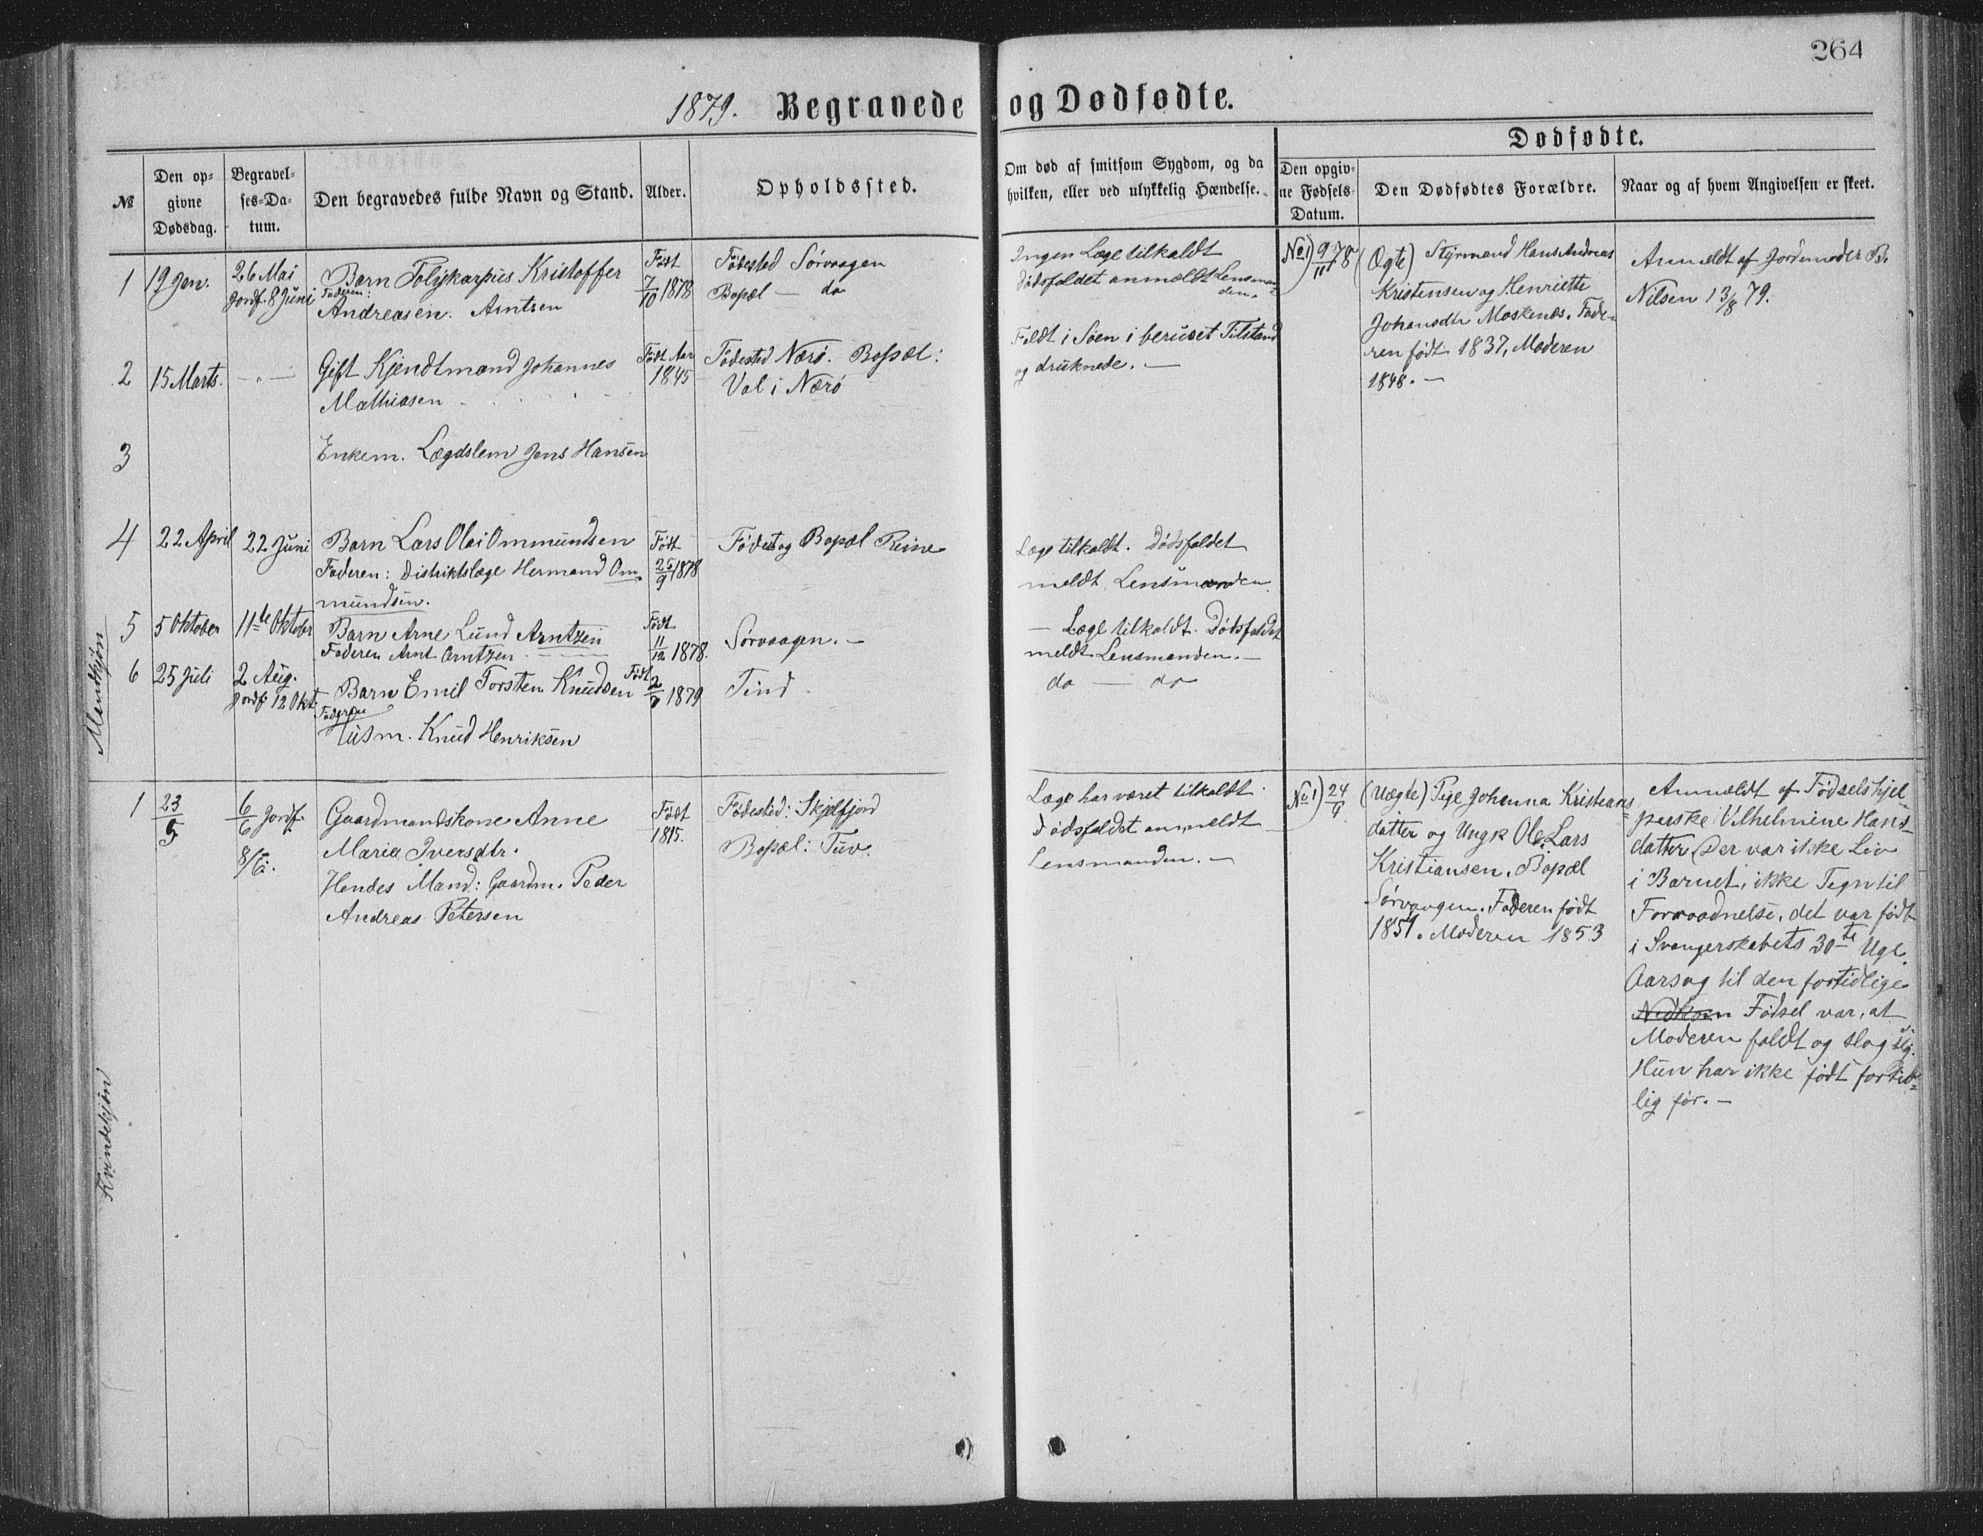 264
1879. Begravede og Dødfødte.
Dødfødte.
№
Den op-
givne
Dødsdag.
Begravel-
ses-Da-
tum.
Den begravedes fulde Navn og Stand.
Alder.
Opholdssted.
Om død af smitsom Sygdom, og da
hvilken, eller ved ulykkelig Hændelse.
Den opgiv-
ne Fødsels-
Datum.
Den Dødfødtes Forældre.
Naar og af hvem Angivelsen er skeet.
Mandkjøn
1
19 Jan.
26 Mai
Jordf. 8 Juni
Barn Polykarpus Kristoffer
Faderen:
Andreasen. Arntzen
Født
7/10 1878
Fødested Sørvaagen
Bopæl — do
Ingen Læge tilkaldt
Dødsfaldet anmeldt Lensman-
den.
No 1) 9/11 78
(Ægte) Styrmand Hans Andreas
Kristensen og Henriette
Johansdtr Moskenæs. Fade-
ren født 1837, Moderen
1848. —
Anmeldt af Jordemoder B.
Nilsen 13/8 79.
2
15 Marts.
—„—
Gift Kjendtmand Johannes
Mathiasen
Født Aar
1845
Fødested Nærø. Bopæl:
Val i Nærø
Faldt i Søen i beruset Tilstand
og druknede. —
3
Enkem. Lægdslem Jens Hansen
4
22 April
22 Juni
Barn Lars Olai Ommundsen
Faderen: Distriktslæge Hermand Om-
mundsen.
Født
25/9 1878
Fødest og Bopæl Reine
Læge tilkaldt. Dødsfaldet
meldt Lensmanden
5
5 Oktober
11te Oktober
Barn Arne Lund Arntzen
Faderen Arnt Arntzen
Født
11/12 1878.
Sørvaagen. —
— Læge tilkaldt. Dødsfaldet
meldt Lensmanden. —
6
25 Juli
2 Aug.
Jordf 12 Okt.
Barn Emil Torsten Knudsen
Faderen
Husm. Knud Henriksen
Født
1879
Tind.
do — do
Kvindekjøn
1
23/5
6/6 Jordf.
8/6.
Gaardmandskone Anne
Maria Iversdtr.
Hendes Mand: Gaardm. Peder
Andreas Petersen
Født
1815.
Fødested: Skjelfjord
Bopæl: Tuv.
Læge har været tilkaldt
Dødsfaldet anmeldt
Lensmanden. —
No 1) 24/9
(Uægte) Pige Johanna Kristians-
datter og Ungk Ole Lars
Kristiansen. Bopæl
Sørvaagen. Faderen født
1851. Moderen 1853
Anmeldt af Fødselshjel-
perske Vilhelmine Hans-
datter Der var ikke Liv
i Barnet, ikke Tegn til
Forraadnelse, det var født
i Svangerskabets 30te Uge.
Aarsag til den fortidlige
Fødsel var, at
Moderen faldt og slog sig.
Hun har ikke født fortid-
lig før. —